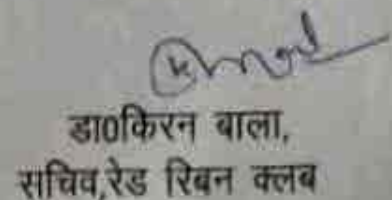 डा0किरन बाला,
सचिव,रेड रिबन क्लब